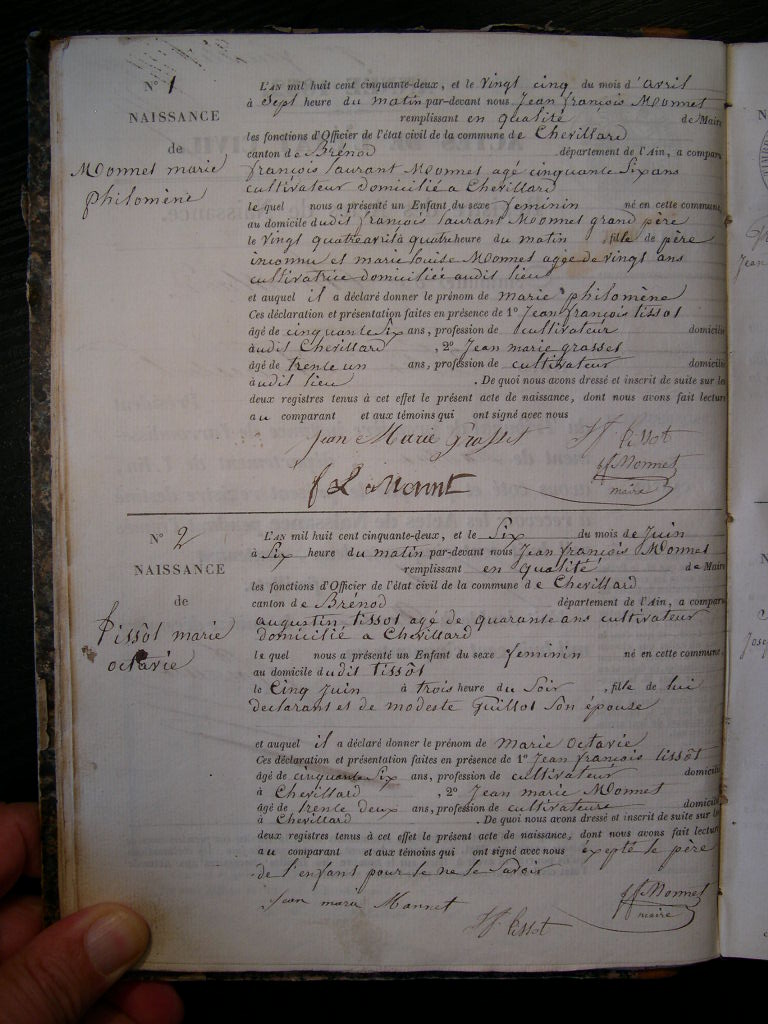 N° 1
NAISSANCE
de
Monnet marie
philomène
L'AN mil huit cent cinquante-deux, et le vingt cinq du mois d'avril
à sept heure du matin par-devant nous Jean françois Monnet
remplissant en qualité de Maire
les fonctions d'Officier de l'état civil de la commune de Chevillard
canton de Brénod département de l'Ain, a compar
françois laurant Monnet agé cinquante six ans
cultivateur domicilié a Chevillard
lequel nous a présenté un Enfant du sexe feminin né en cette commune
au domicile dudit françois laurant Monnet grand père
le vingt quatre avril à quatre heure du matin , fille de père
inconnu et marie louise Monnet aggé de vingt ans
cultivatrice domiciliée audit lieu
et auquel il a déclaré donner le prénom de marie philomène
Ces déclaration et présentation faites en présence de 1° Jean françois tissot
âgé de cinquante six ans, profession de cultivateur domicilié
à audit Chevillard , 2° Jean marie grasset
âgé de trente un ans, profession de cultivateur domicilié
à udit lieu . De quoi nous avons dressé et inscrit de suite sur les
deux registres tenus à cet effet le présent acte de naissance, dont nous avons fait lecture
au comparant et aux témoins qui ont signé avec nous
Jean Marie Grasset
Jf tissot
f L Monnet
jf Monnet
maire
N° 2
NAISSANCE
de
Tissôt marie
octavie
L'AN mil huit cent cinquante-deux, et le Six du mois de Juin
à Six heure du matin par-devant nous Jean françois Monnet
remplissant en qualité de Maire
les fonctions d'Officier de l'état civil de la commune de Chevillard
canton de Brénod département de l'Ain, a compar
augustin tissot agé de quarante ans cultivateur
domicilié a Chevillard
lequel nous a présenté un Enfant du sexe feminin né en cette commune
au domicile dudit tissôt
le Cinq Juin à trois heure du Soir , fille de lui
declarant et de modeste Guillot Son épouse
et auquel il a déclaré donner le prénom de marie octavie
Ces déclaration et présentation faites en présence de 1° Jean françois tissôt
âgé de cinquante six ans, profession de cultivateur domicilié
à Chevillard , 2° Jean marie Monnet
âgé de trente deux ans, profession de cultivateure domicilié
à Chevillard . De quoi nous avons dressé et inscrit de suite sur les
deux registres tenus à cet effet le présent acte de naissance, dont nous avons fait lecture
au comparant et aux témoins qui ont signé avec nous exepté le père
de l'enfant pour le ne le Savoir
Jean marie Monnet
Jf tissot
jf Monnet
maire